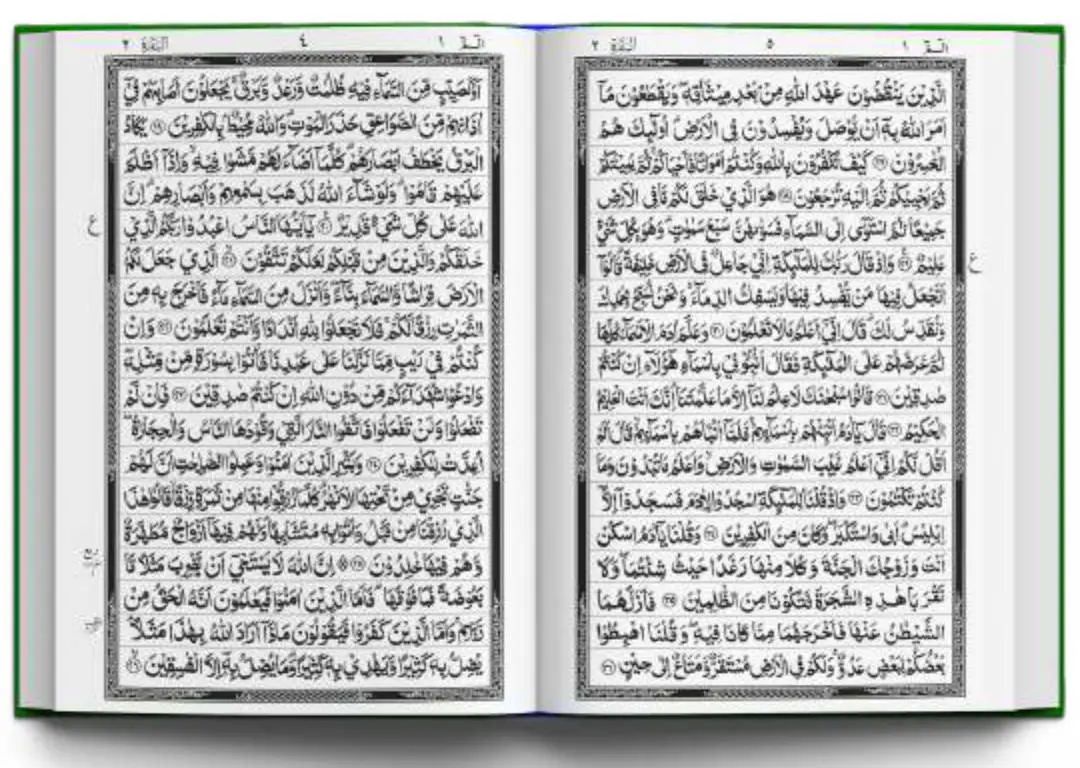 الٓمّٓ ١ ٤ البقرة ٢
اَوْ كَصَيِّبٍ مِّنَ السَّمَآءِ فِيْهِ ظُلُمٰتٌ وَّرَعْدٌ وَّبَرْقٌ ۚ يَجْعَلُوْنَ اَصَابِعَهُمْ فِيْٓ
اٰذَانِهِمْ مِّنَ الصَّوَاعِقِ حَذَرَ الْمَوْتِ ؕ وَاللّٰهُ مُحِيْطٌۢ بِالْكٰفِرِيْنَ ۝۱۹ يَكَادُ
الْبَرْقُ يَخْطَفُ اَبْصَارَهُمْ ؕ كُلَّمَآ اَضَآءَ لَهُمْ مَّشَوْا فِيْهِ ۙ وَاِذَآ اَظْلَمَ
عَلَيْهِمْ قَامُوْا ؕ وَلَوْ شَآءَ اللّٰهُ لَذَهَبَ بِسَمْعِهِمْ وَاَبْصَارِهِمْ ؕ اِنَّ
اللّٰهَ عَلٰى كُلِّ شَيْءٍ قَدِيْرٌ ۝۲۰ يٰٓاَيُّهَا النَّاسُ اعْبُدُوْا رَبَّكُمُ الَّذِيْ
خَلَقَكُمْ وَالَّذِيْنَ مِنْ قَبْلِكُمْ لَعَلَّكُمْ تَتَّقُوْنَ ۝۲۱ الَّذِيْ جَعَلَ لَكُمُ
الْاَرْضَ فِرَاشًا وَّالسَّمَآءَ بِنَآءً ۪ وَّاَنْزَلَ مِنَ السَّمَآءِ مَآءً فَاَخْرَجَ بِهٖ مِنَ
الثَّمَرٰتِ رِزْقًا لَّكُمْ ۚ فَلَا تَجْعَلُوْا لِلّٰهِ اَنْدَادًا وَّاَنْتُمْ تَعْلَمُوْنَ ۝۲۲ وَاِنْ
كُنْتُمْ فِيْ رَيْبٍ مِّمَّا نَزَّلْنَا عَلٰى عَبْدِنَا فَاْتُوْا بِسُوْرَةٍ مِّنْ مِّثْلِهٖ
وَادْعُوْا شُهَدَآءَكُمْ مِّنْ دُوْنِ اللّٰهِ اِنْ كُنْتُمْ صٰدِقِيْنَ ۝۲۳ فَاِنْ لَّمْ
تَفْعَلُوْا وَلَنْ تَفْعَلُوْا فَاتَّقُوا النَّارَ الَّتِيْ وَقُوْدُهَا النَّاسُ وَالْحِجَارَةُ ۖۚ
اُعِدَّتْ لِلْكٰفِرِيْنَ ۝۲۴ وَبَشِّرِ الَّذِيْنَ اٰمَنُوْا وَعَمِلُوا الصّٰلِحٰتِ اَنَّ لَهُمْ
جَنّٰتٍ تَجْرِيْ مِنْ تَحْتِهَا الْاَنْهٰرُ ؕ كُلَّمَا رُزِقُوْا مِنْهَا مِنْ ثَمَرَةٍ رِّزْقًا ۙ قَالُوْا هٰذَا
الَّذِيْ رُزِقْنَا مِنْ قَبْلُ ۙ وَاُتُوْا بِهٖ مُتَشَابِهًا ؕ وَلَهُمْ فِيْهَآ اَزْوَاجٌ مُّطَهَّرَةٌ ۙ
وَّهُمْ فِيْهَا خٰلِدُوْنَ ۝۲۵ اِنَّ اللّٰهَ لَا يَسْتَحْيٖٓ اَنْ يَّضْرِبَ مَثَلًا مَّا
بَعُوْضَةً فَمَا فَوْقَهَا ؕ فَاَمَّا الَّذِيْنَ اٰمَنُوْا فَيَعْلَمُوْنَ اَنَّهُ الْحَقُّ مِنْ
رَّبِّهِمْ ۚ وَاَمَّا الَّذِيْنَ كَفَرُوْا فَيَقُوْلُوْنَ مَاذَآ اَرَادَ اللّٰهُ بِهٰذَا مَثَلًا ۘ
يُضِلُّ بِهٖ كَثِيْرًا ۙ وَّيَهْدِيْ بِهٖ كَثِيْرًا ؕ وَمَا يُضِلُّ بِهٖٓ اِلَّا الْفٰسِقِيْنَ ۝۲۶
ع
الٓمّٓ ١ ٥ البقرة ٢
الَّذِيْنَ يَنْقُضُوْنَ عَهْدَ اللّٰهِ مِنْۢ بَعْدِ مِيْثَاقِهٖ ۪ وَيَقْطَعُوْنَ مَآ
اَمَرَ اللّٰهُ بِهٖٓ اَنْ يُّوْصَلَ وَيُفْسِدُوْنَ فِى الْاَرْضِ ؕ اُولٰٓئِكَ هُمُ
الْخٰسِرُوْنَ ۝۲۷ كَيْفَ تَكْفُرُوْنَ بِاللّٰهِ وَكُنْتُمْ اَمْوَاتًا فَاَحْيَاكُمْ ۚ ثُمَّ يُمِيْتُكُمْ
ثُمَّ يُحْيِيْكُمْ ثُمَّ اِلَيْهِ تُرْجَعُوْنَ ۝۲۸ هُوَ الَّذِيْ خَلَقَ لَكُمْ مَّا فِى الْاَرْضِ
جَمِيْعًا ۗ ثُمَّ اسْتَوٰٓى اِلَى السَّمَآءِ فَسَوّٰىهُنَّ سَبْعَ سَمٰوٰتٍ ؕ وَهُوَ بِكُلِّ شَيْءٍ
عَلِيْمٌ ۝۲۹ وَاِذْ قَالَ رَبُّكَ لِلْمَلٰٓئِكَةِ اِنِّيْ جَاعِلٌ فِى الْاَرْضِ خَلِيْفَةً ؕ قَالُوْٓا
اَتَجْعَلُ فِيْهَا مَنْ يُّفْسِدُ فِيْهَا وَيَسْفِكُ الدِّمَآءَ ۚ وَنَحْنُ نُسَبِّحُ بِحَمْدِكَ
وَنُقَدِّسُ لَكَ ؕ قَالَ اِنِّيْٓ اَعْلَمُ مَا لَا تَعْلَمُوْنَ ۝۳۰ وَعَلَّمَ اٰدَمَ الْاَسْمَآءَ كُلَّهَا
ثُمَّ عَرَضَهُمْ عَلَى الْمَلٰٓئِكَةِ فَقَالَ اَنْۢبِـُٔوْنِيْ بِاَسْمَآءِ هٰٓؤُلَآءِ اِنْ كُنْتُمْ
صٰدِقِيْنَ ۝۳۱ قَالُوْا سُبْحٰنَكَ لَا عِلْمَ لَنَآ اِلَّا مَا عَلَّمْتَنَا ؕ اِنَّكَ اَنْتَ الْعَلِيْمُ
الْحَكِيْمُ ۝۳۲ قَالَ يٰٓاٰدَمُ اَنْۢبِئْهُمْ بِاَسْمَآئِهِمْ ۚ فَلَمَّآ اَنْۢبَاَهُمْ بِاَسْمَآئِهِمْ ۙ قَالَ اَلَمْ
اَقُلْ لَّكُمْ اِنِّيْٓ اَعْلَمُ غَيْبَ السَّمٰوٰتِ وَالْاَرْضِ ۙ وَاَعْلَمُ مَا تُبْدُوْنَ وَمَا
كُنْتُمْ تَكْتُمُوْنَ ۝۳۳ وَاِذْ قُلْنَا لِلْمَلٰٓئِكَةِ اسْجُدُوْا لِاٰدَمَ فَسَجَدُوْٓا اِلَّآ
اِبْلِيْسَ ؕ اَبٰى وَاسْتَكْبَرَ ۗ وَكَانَ مِنَ الْكٰفِرِيْنَ ۝۳۴ وَقُلْنَا يٰٓاٰدَمُ اسْكُنْ
اَنْتَ وَزَوْجُكَ الْجَنَّةَ وَكُلَا مِنْهَا رَغَدًا حَيْثُ شِئْتُمَا ۪ وَلَا
تَقْرَبَا هٰذِهِ الشَّجَرَةَ فَتَكُوْنَا مِنَ الظّٰلِمِيْنَ ۝۳۵ فَاَزَلَّهُمَا
الشَّيْطٰنُ عَنْهَا فَاَخْرَجَهُمَا مِمَّا كَانَا فِيْهِ ۪ وَقُلْنَا اهْبِطُوْا
بَعْضُكُمْ لِبَعْضٍ عَدُوٌّ ۚ وَلَكُمْ فِى الْاَرْضِ مُسْتَقَرٌّ وَّمَتَاعٌ اِلٰى حِيْنٍ ۝۳۶
ع